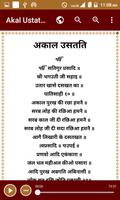 11:08 am
Akal Ustat...
अकाल उसतति
ੴ
ੴ सतिगुर प्रसादि ॥
स्री भगउती जी सहाइ ॥
उतार खासे दसखत का ॥
पातिसाही १० ॥
अकाल पुरख की रछा हमनै ॥
सरब लोह की रछिआ हमनै ॥
सरब काल जी दी रछिआ हमनै ॥
सरब लोह जी दी सदा रछिआ हमनै ॥
आगै लिखारी के दसतखत ॥
त्व प्रसादि ॥ चउपई ॥
प्रणवो आदि एकंकारा ॥
जल थल महीअल कीओ पसारा ॥
आदि पुरख अबगति अबिनासी ॥